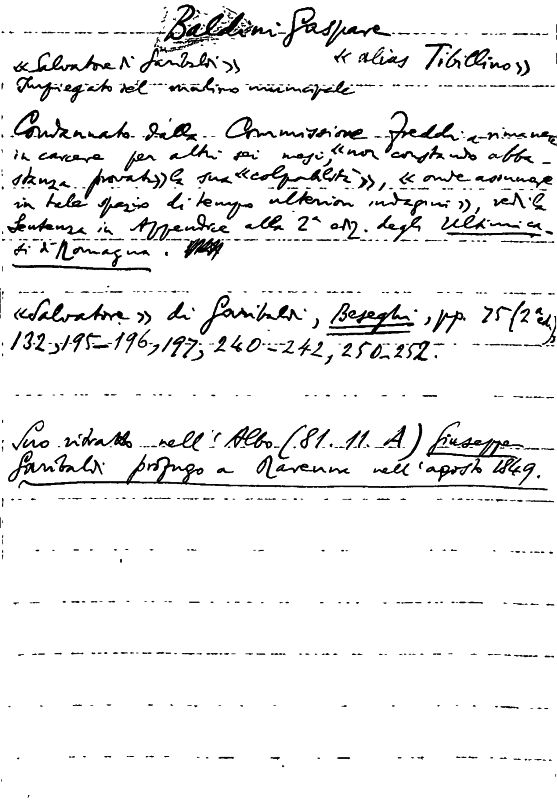 Baldini Gaspare
«Salvatore di Garibaldi» «alias Tibillino»
Impiegato nel mulino municipale
Condannato dalla Commissione Freddi a rimanere
in carcere per altri sei mesi, «non constando abba-
stanza provata» la sua «colpabilità», «onde assumere
in tale spazio di tempo ulteriori indagini», vedi la
Sentenza in Appendice alla 2ª ediz. degli Ultimi ca-
si di Romagna.
«Salvatore» di Garibaldi, Beseghi, pp. 75 (2ª ed.),
132, 195-196, 197, 240-242, 250-252.
Suo ritratto nell'Albo (81. 11. A) Giuseppe
Garibaldi profugo a Ravenna nell'agosto 1849.